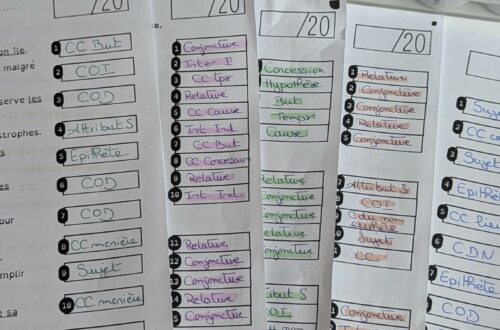 /20
/20
/20
on île.
malgré
serve les
strophes.
s
es
our
mplir
e sa
1 CC But
2 COI
3 COD
4 Attribut S
5 Epithète
6 COD
7 COD
8 CC manière
9 Sujet
10 CC manière
e.
1 Conjonctive
2 Inter. I
3 CC Tps
4 Relative
5 CC Cause
6 Int Ind
7 CC But
8 CC Concession
9 Relative
10 Int. Ind
11 Relative
12 Conjonctive
13 Conjonctive
14 Relative
5 Conjonctive
Concession
Hypothèse
But
Temps
Cause
Relative
onjonctive
onjonctive
elative
onjonctive
ttribut S
OI
1 Relative
2 Conjonctive
3 Conjonctive
4 Relative
5 Conjonctive
7 Attribut S
8 COI
épithète
Sujet
CC
Conjonctive
1 Suje
2 CC co
3 Sujet
4 Epithèt
5 CC lieu
6 CDN
7 Epithète
8 COD